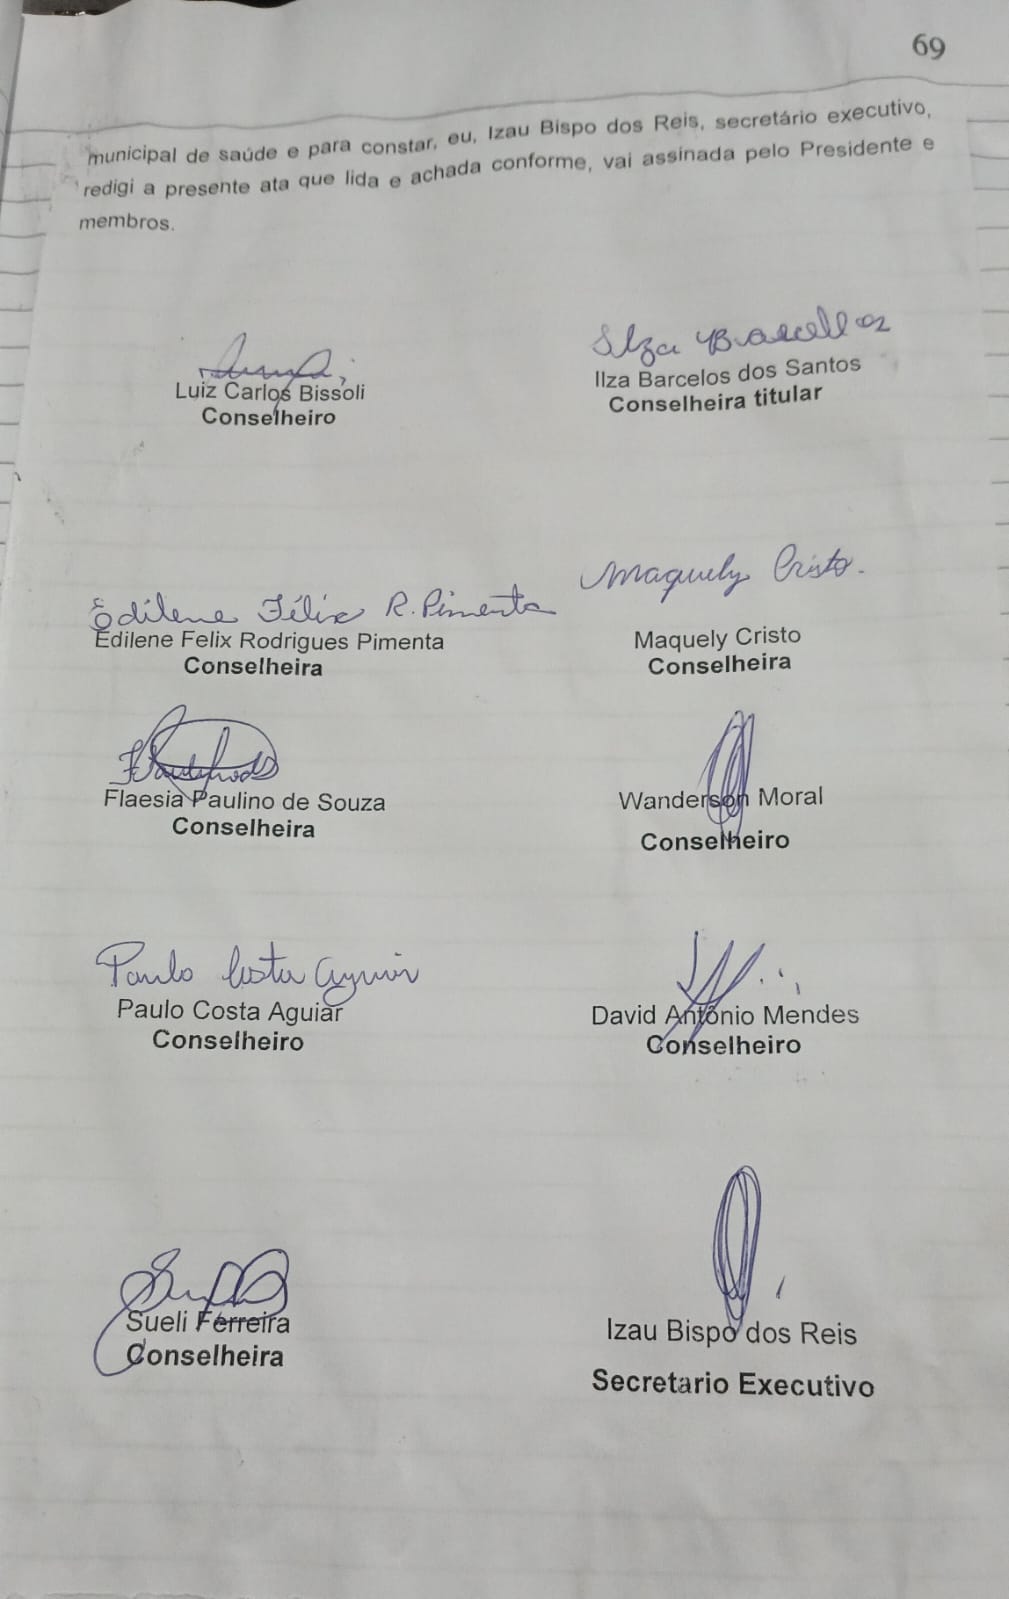 69
municipal de saúde e para constar, eu, Izau Bispo dos Reis, secretário executivo,
redigi a presente ata que lida e achada conforme, vai assinada pelo Presidente e
membros.
Luiz Carlos Bissoli
Conselheiro
Ilza Barcellos
Ilza Barcelos dos Santos
Conselheira titular
Edilene Félix R. Pimenta
Edilene Felix Rodrigues Pimenta
Conselheira
Maquely Cristo.
Maquely Cristo
Conselheira
Flaesia Paulino de Souza
Conselheira
Wanderson Moral
Conselheiro
Paulo Costa Aguiar
Paulo Costa Aguiar
Conselheiro
David Antônio Mendes
Conselheiro
Sueli Ferreira
Conselheira
Izau Bispo dos Reis
Secretario Executivo